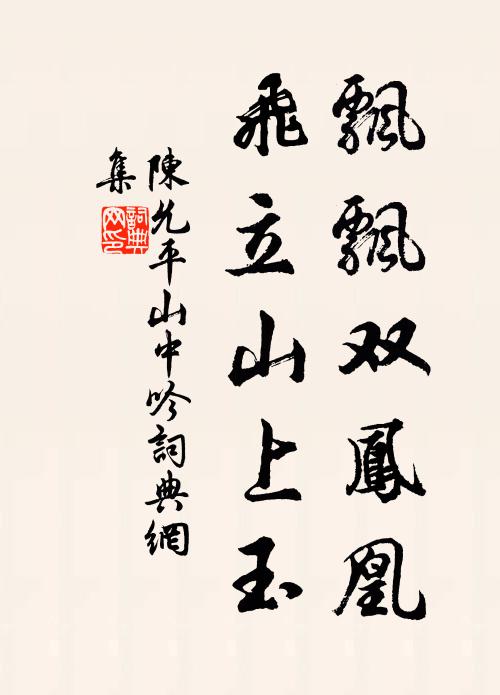 飄飄双鳳凰
飛立山上玉
陳允平山中吟詞典網
集
詞典
网印